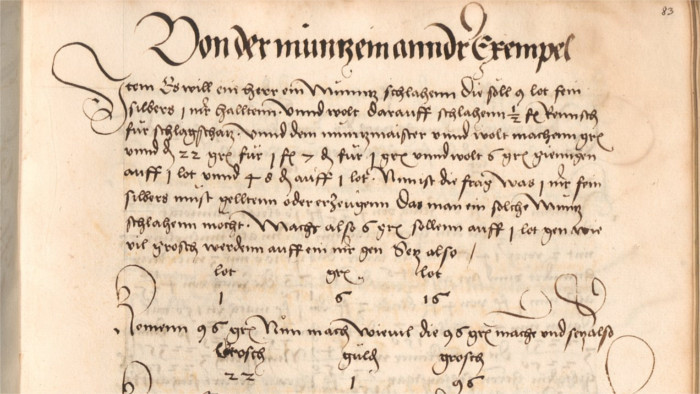 83
Von der müntz ein annder Exempel
Item Es will ein herr ein Müntz schlahenn Die soll 9 lot fein
silbers 1 mr halltenn vnnd wolt darauff schlahenn ½ fl Reinisch
für schlagschatz vnnd dem müntzmaister vnnd wolt machenn grx
vnnd ₰ 22 grx für 1 fl 7 ₰ für 1 grx vnnd wolt 6 grx giengen
auff 1 lot vnnd 48 ₰ auff 1 lot Nun ist die frag was 1 mr fein
silbers müst gelltenn oder erzeugenn Das man ein solche Müntz
schlahenn möcht Machs also 6 grx sollenn auff 1 lot gen wie
vil grosch werdenn auff ein mr gen Setz also /
lot grx lot
1 6 16
komenn 96 grx Nun mach wieuil die 96 grx macht vnd setz also
Grosch güld grosch
22 1 96